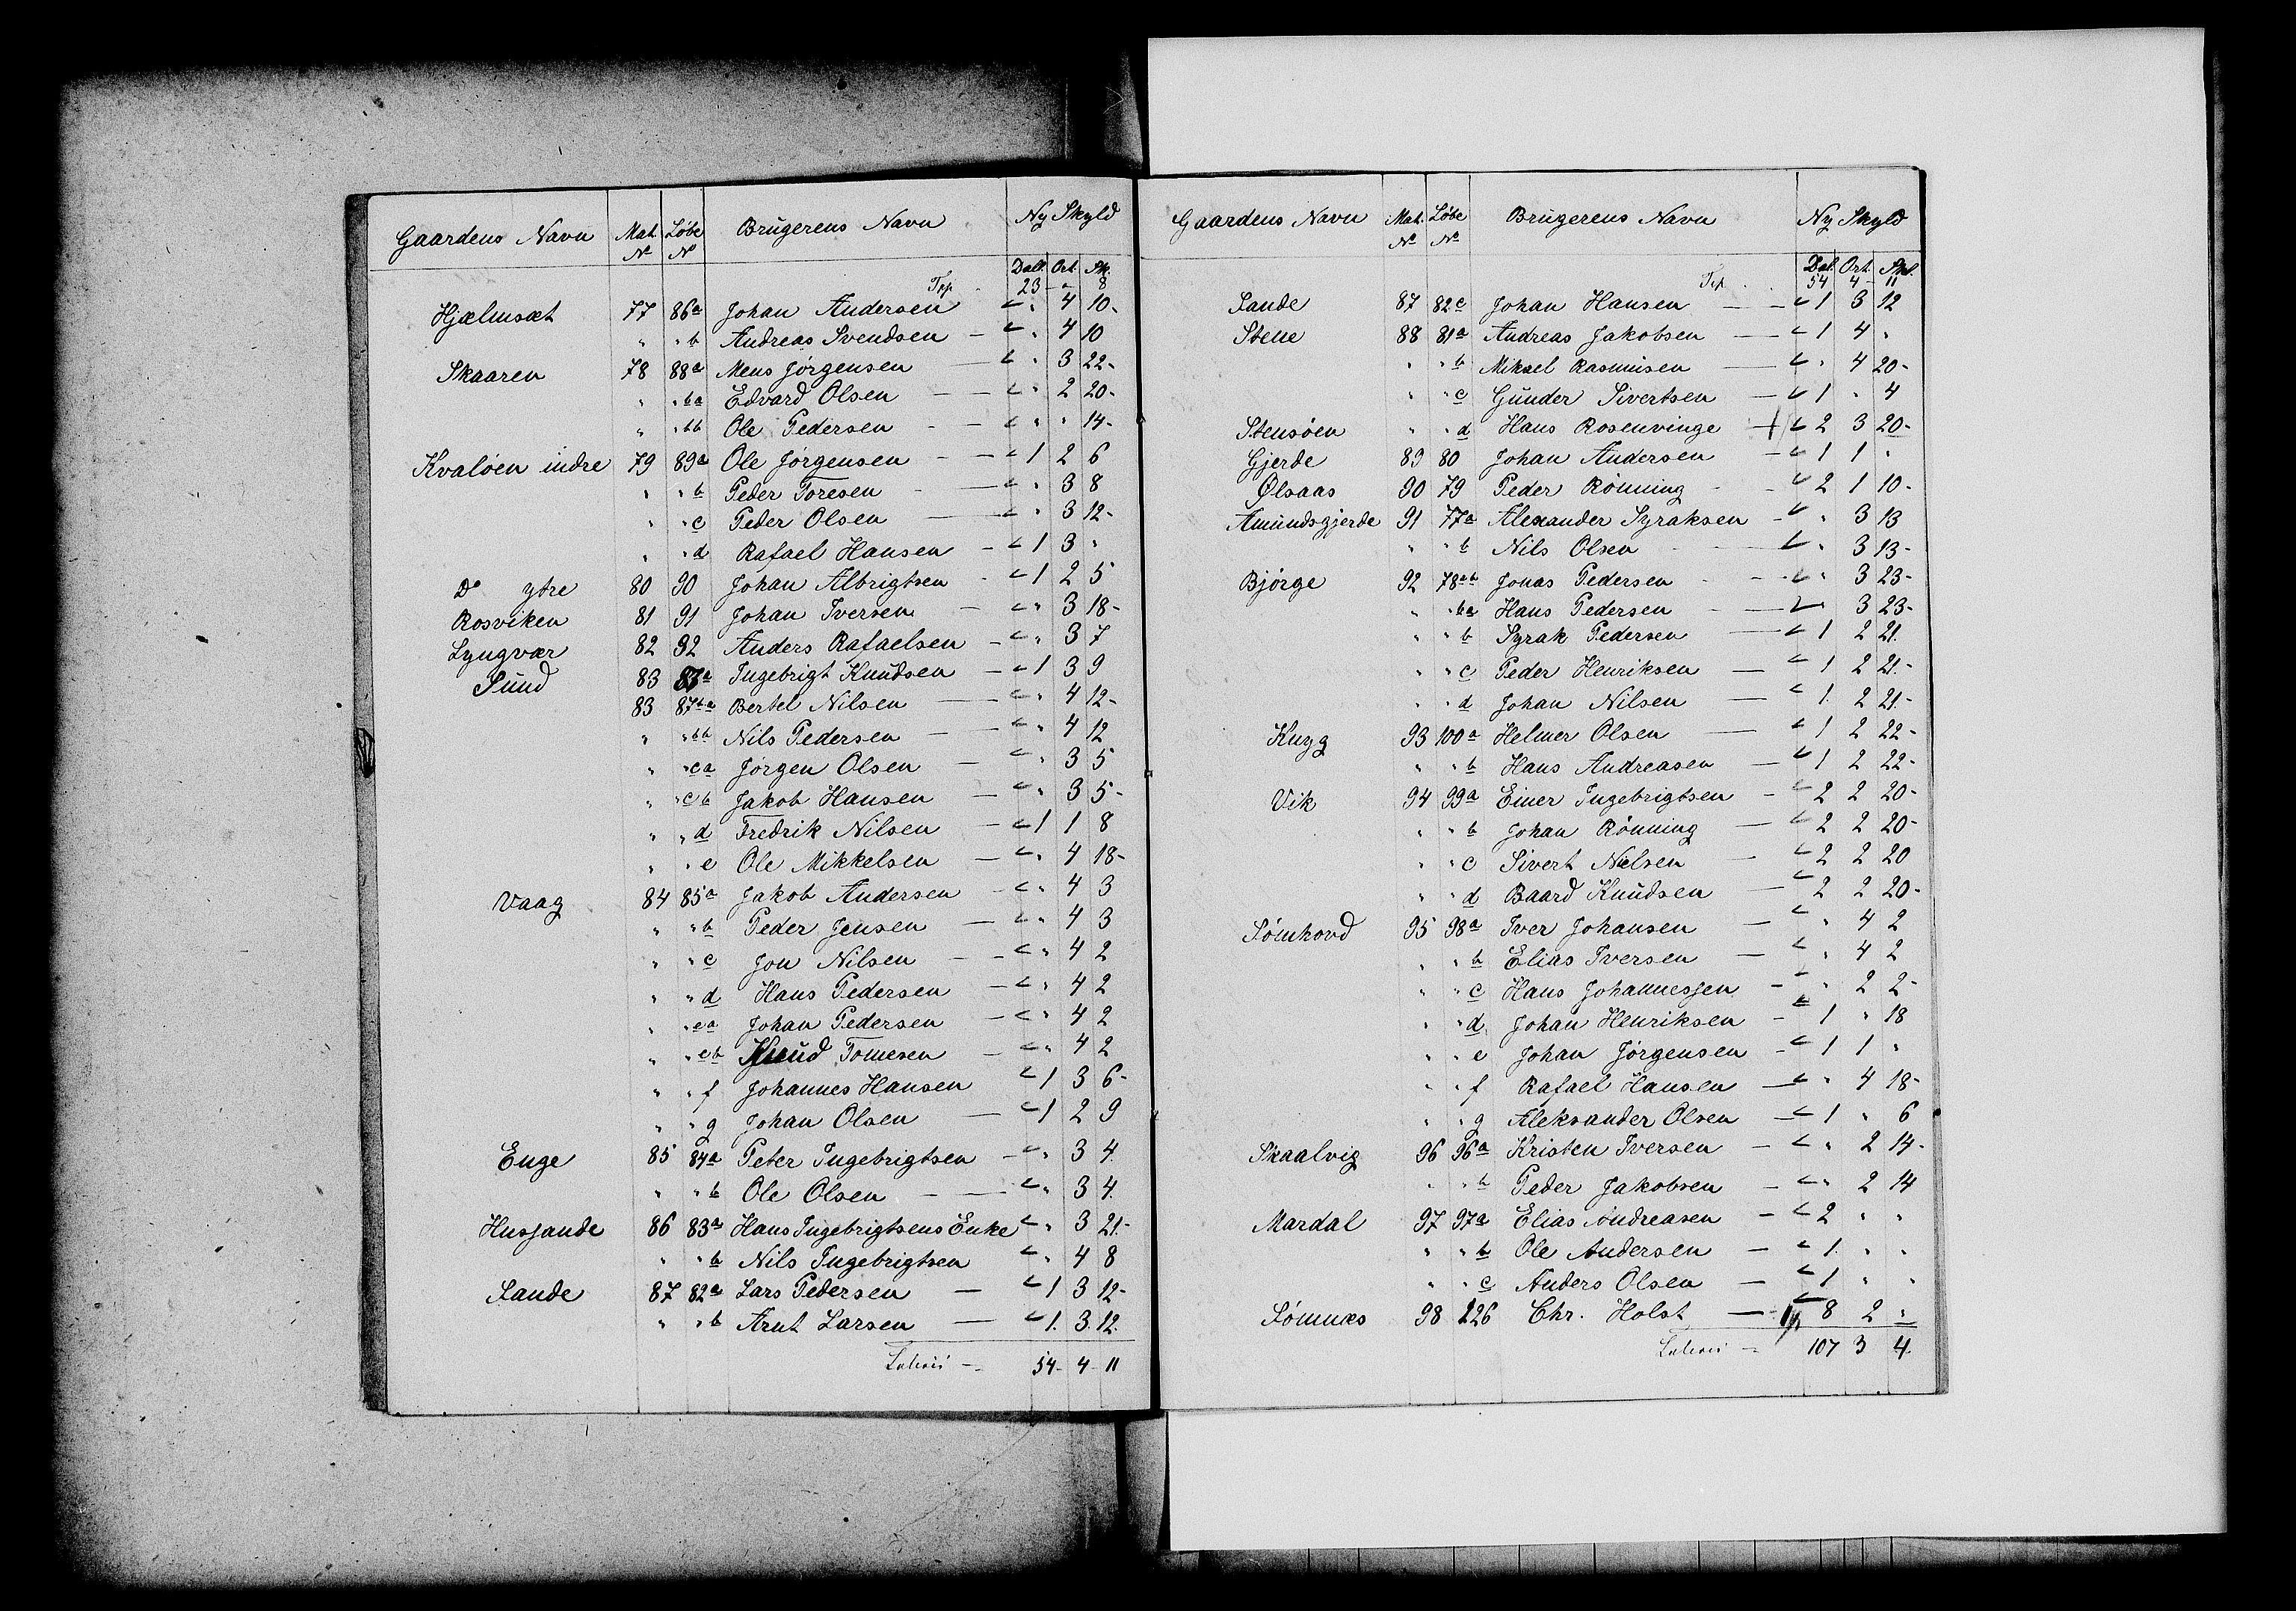 Gaardens Navn Mat. Løbe Brugerens Navn Ny Skyld
No No
Dall. Ort. Sk.
Trp. 23 - " 8
Hjælmsæt 77 86a Johan Andersen " 4 10
" " b Andreas Svendsen — " 4 10
Skaaren 78 88a Mens Jørgensen — " 3 22
" " ba Edvard Olsen — " 2 20
" " bb Ole Pedersen — " " 14
Kvaløen indre 79 89a Ole Jørgensen — 1 2 6
" " b Peder Toresen — " 3 8
" " c Peder Olsen — " 3 12
" " d Rafael Hansen — 1 3 "
Do ytre 80 90 Johan Albrigtsen - 1 2 5
Rosviken 81 91 Johan Iversen — " 3 18
Lyngvær 82 92 Anders Rafaelsen — " 3 7
Sund 83 87a Ingebrigt Knudsen — 1 3 9
83 87ba Bertel Nilsen — " 4 12
" " bb Nils Pedersen — " 4 12
" " ca Jørgen Olsen — " 3 5
" " cb Jakob Hansen — " 3 5
" " d Fredrik Nilsen — 1 1 8
" " e Ole Mikkelsen — " 4 18
Vaag 84 85a Jakob Andersen — " 4 3
" " b Peder Jensen — " 4 3
" " c Jon Nilsen — " 4 2
" " d Hans Pedersen — " 4 2
" " ea Johan Pedersen — " 4 2
" " eb Knud Tomesen — " 4 2
" " f Johannes Hansen 1 3 6
" " g Johan Olsen — 1 2 9
Enge 85 84a Peter Ingebrigtsen — " 3 4
" " b Ole Olsen — " 3 4
Hussande 86 83a Hans Ingebrigtsens Enke " 3 21
" " b Nils Ingebrigtsen " 4 8
Sande 87 82a Lars Pedersen — 1 3 12
" " b Arnt Larsen — 1. 3. 12.
54 - 4 - 11
Gaardens Navn Mat. Løbe Brugerens Navn Ny Skyld
No No
Dal. Ort. Skl.
Trp. 54 4 - 11
Sande 87 82c Johan Hansen — 1 3 12
Stene 88 81a Andreas Jakobsen — 1 4 "
" " b Mikael Rasmusen — " 4 20
" " c Gunder Sivertsen — 1 " 4
Stensøen " " d Hans Rosenvinge + 2 3 20
Gjerde 89 80 Johan Andersen — 1 1 "
Ølsaas 90 79 Peder Rønning - 2 1 10
Amundsgjerde 91 77a Alexander Syraksen - " 3 13
" " b Nils Olsen — " 3 13
Bjørge 92 78ab Jonas Pedersen - " 3 23
" " ba Hans Pedersen — " 3 23
" " b Syrak Pedersen — 1 2 21
" " c Peder Henriksen — 1 2 21
" " d Johan Nilsen — 1 2 21
Knyg 93 100a Helmer Olsen — 1 2 22
" " b Hans Andreasen — 1 2 22
Vik 94 99a Einer Ingebrigtsen - 2 2 20
" " b Johan Rønning — 2 2 20
" " c Sivert Nielsen — 2 2 20
" " d Baard Knudsen — 2 2 20
Sømhovd 95 98a Iver Johansen — " 4 2
" " b Elias Iversen — " 4 2
" " c Hans Johannessen - " 2 2
" " d Johan Henriksen - 1 " 18
" " e Johan Jørgensen - 1 1 "
" " f Rafael Hansen — " 4 18
" " g Aleksander Olsen — 1 " 6
Skaalvig 96 96a Kristen Iversen — " 2 14
" " b Peder Jakobsen — " 2 14
Mardal 97 97a Elias Andreasen — 2 " "
" " b Ole Andersen — 1 " "
" " c Anders Olsen — 1 " "
Sømnæs 98 126 Chr. Holst — 8 2 "
107 3 4